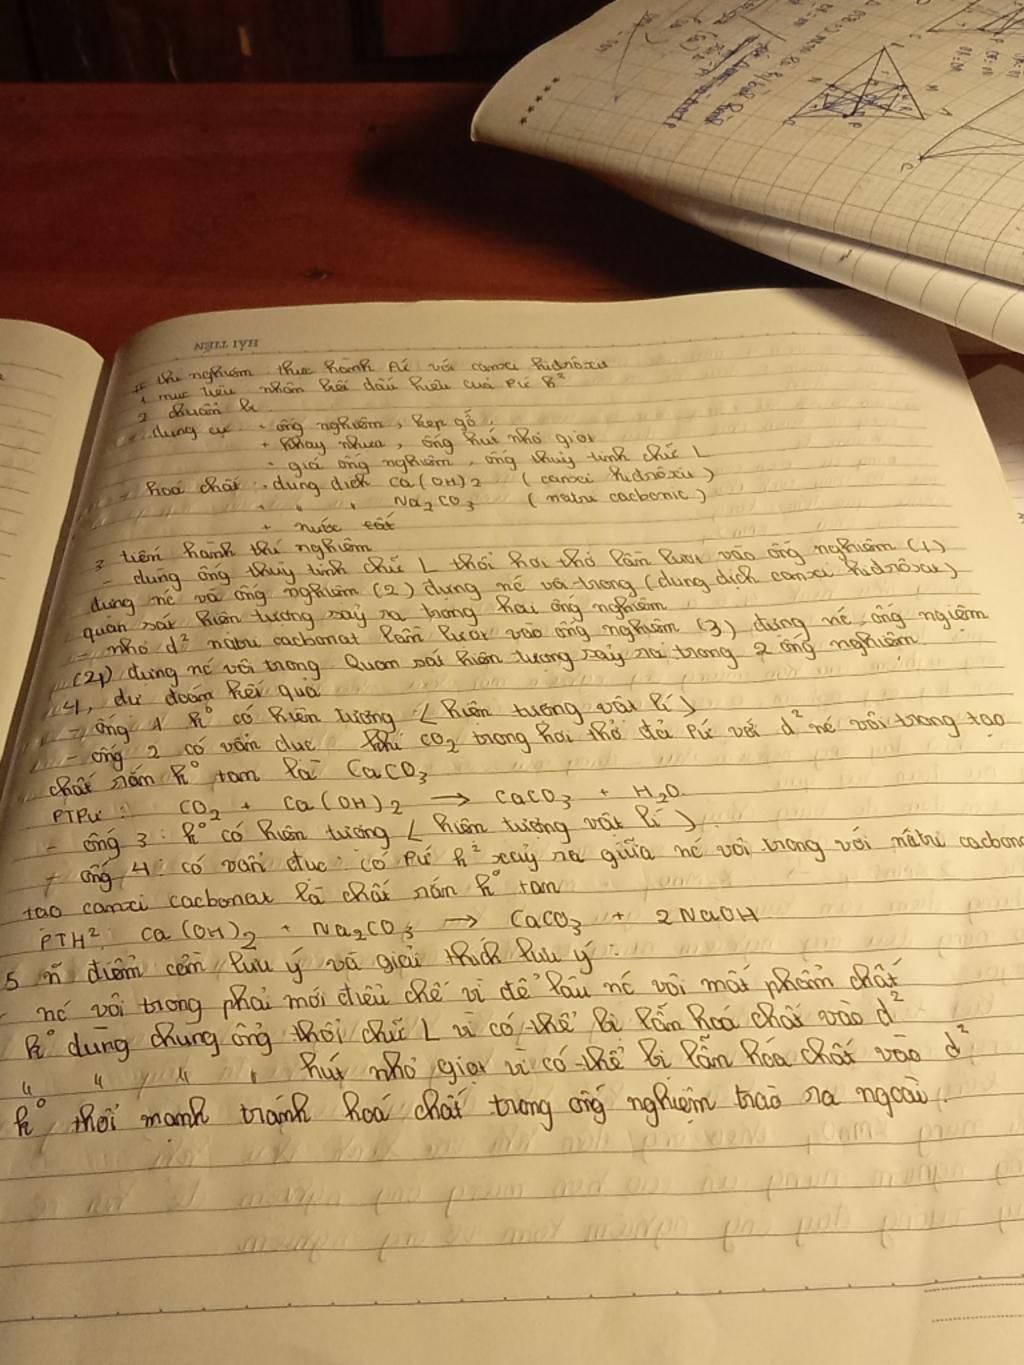 HẢI TIẾN
II thí nghiệm thực hành PỨ với canxi hiđrôxit
1 mục tiêu nhận biết dấu hiệu của PỨ h²
2 chuẩn bị
- dụng cụ + ống nghiệm, kẹp gỗ,
+ khay nhựa, ống hút nhỏ giọt
- giá ống nghiệm, ống thuỷ tinh chữ L
- hoá chất + dung dịch Ca(OH)2 (canxi hiđrôxit)
+ " " Na2CO3 (natri cacbonic)
+ nước cất
3 tiến hành thí nghiệm
- dùng ống thuỷ tinh chữ L thổi hơi thở lần lượt vào ống nghiệm (1)
đựng nc và ống nghiệm (2) đựng nc vôi trong (dung dịch canxi hiđrôxit)
quan sát hiện tượng sảy ra trong hai ống nghiệm
- nhỏ d² natri cacbonat lần lượt vào ống nghiệm (3) đựng nc, ống ngiệm
(4) đựng nc vôi trong. Quan sát hiện tượng sảy ra trong 2 ống nghiệm.
4, dự đoán kết quả
- ống 1 k° có hiện tượng (hiện tượng vật lí)
- ống 2 có vẩn đục khí CO2 trong hơi thở đã PỨ với d² nc vôi trong tạo
chất rắn k° tan là CaCO3
PTPƯ: CO2 + Ca(OH)2 → CaCO3 + H2O
- ống 3: k° có hiện tượng (hiện tượng vật lí).
+ ống 4: có vẩn đục: có PỨ h² xảy ra giữa nc vôi trong với natri cacbona
tạo canxi cacbonat là chất rắn k° tan
PTH²: Ca(OH)2 + Na2CO3 → CaCO3 + 2NaOH
5 ~ điểm cần lưu ý và giải thích lưu ý:
- nc vôi trong phải mới điều chế vì để lâu nc vôi mất phẩm chất
k° dùng chung ống thổi chữ L vì có thể bị lẫn hoá chất vào d²
" " " " hút nhỏ giọt vì có thể bị lẫn hóa chất vào d²
k° thổi mạnh tránh hoá chất trong ống nghiệm trào ra ngoài.